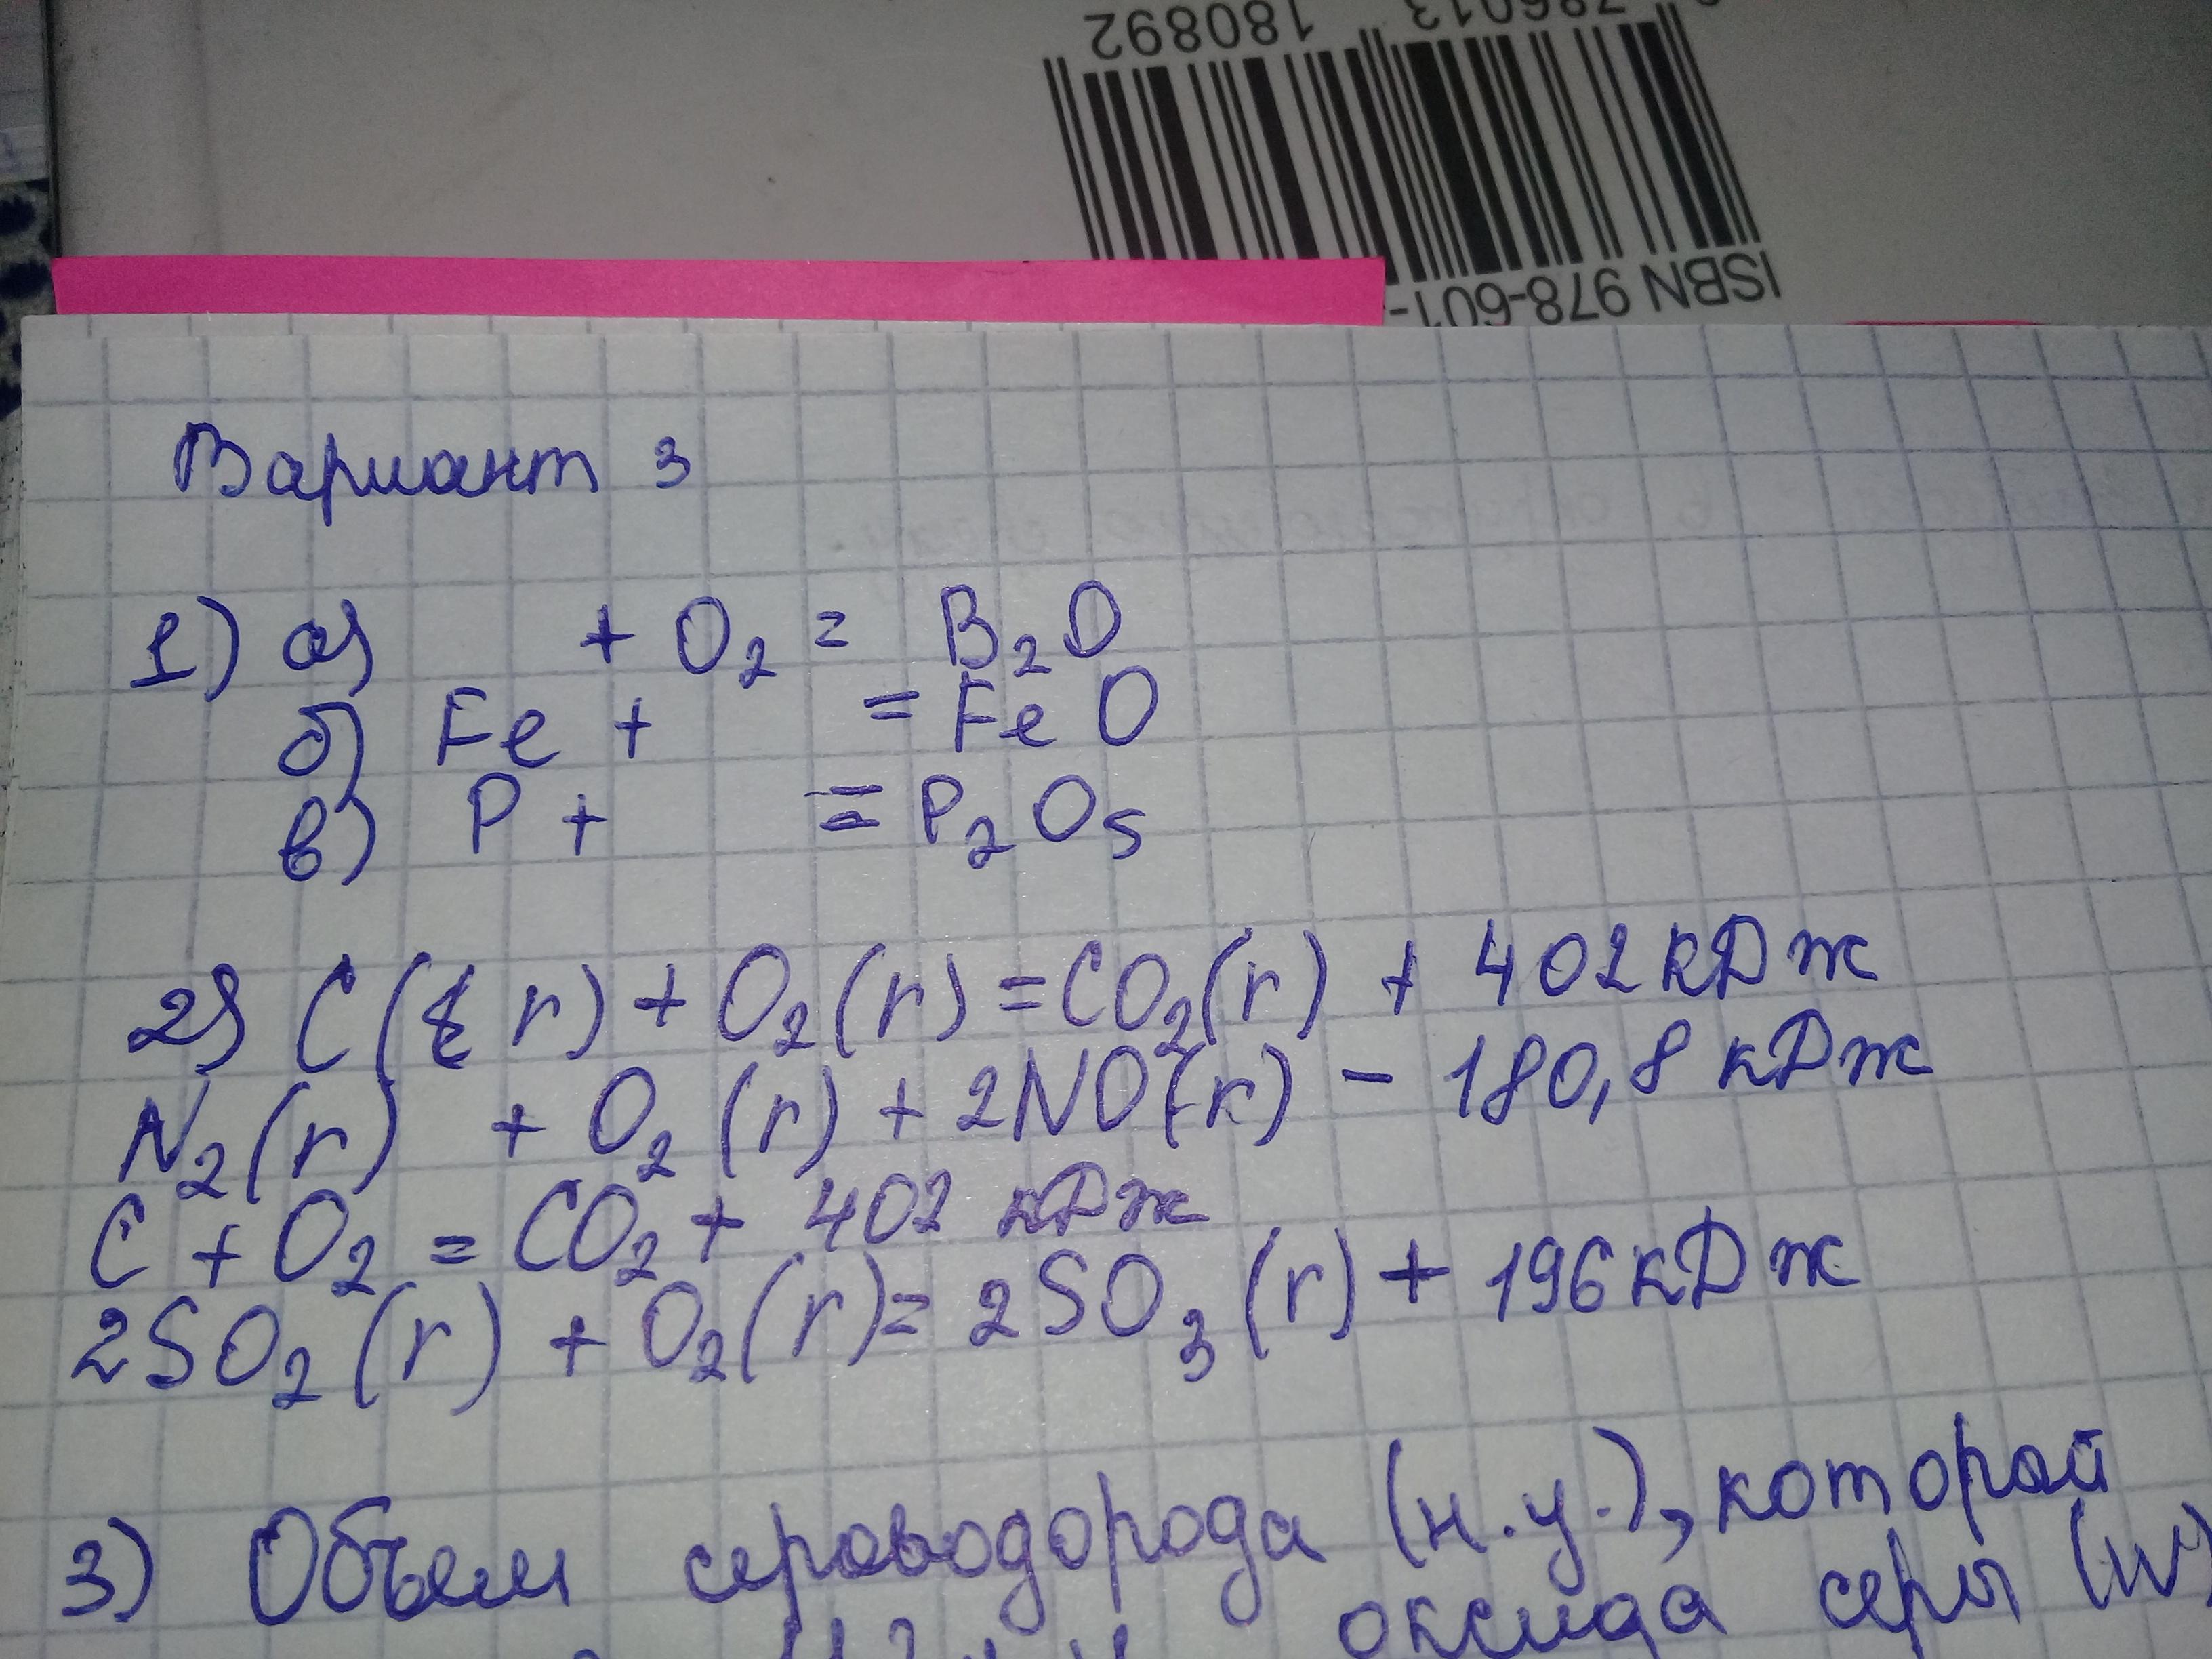 180892
786013
ISBN 978-601-
Вариант 3
1) а) + O₂ = B₂O
б) Fe + = FeO
в) P + = P₂O₅
2) C( г) + O₂(г) = CO₂(г) + 402 кДж
N₂(г) + O₂(г) + 2NO(г) - 180,8 кДж
C + O₂ = CO₂ + 402 кДж
2SO₂(г) + O₂(г) = 2SO₃(г) + 196 кДж
3) Объем сероводорода (н.у.), который
оксида серы (IV)